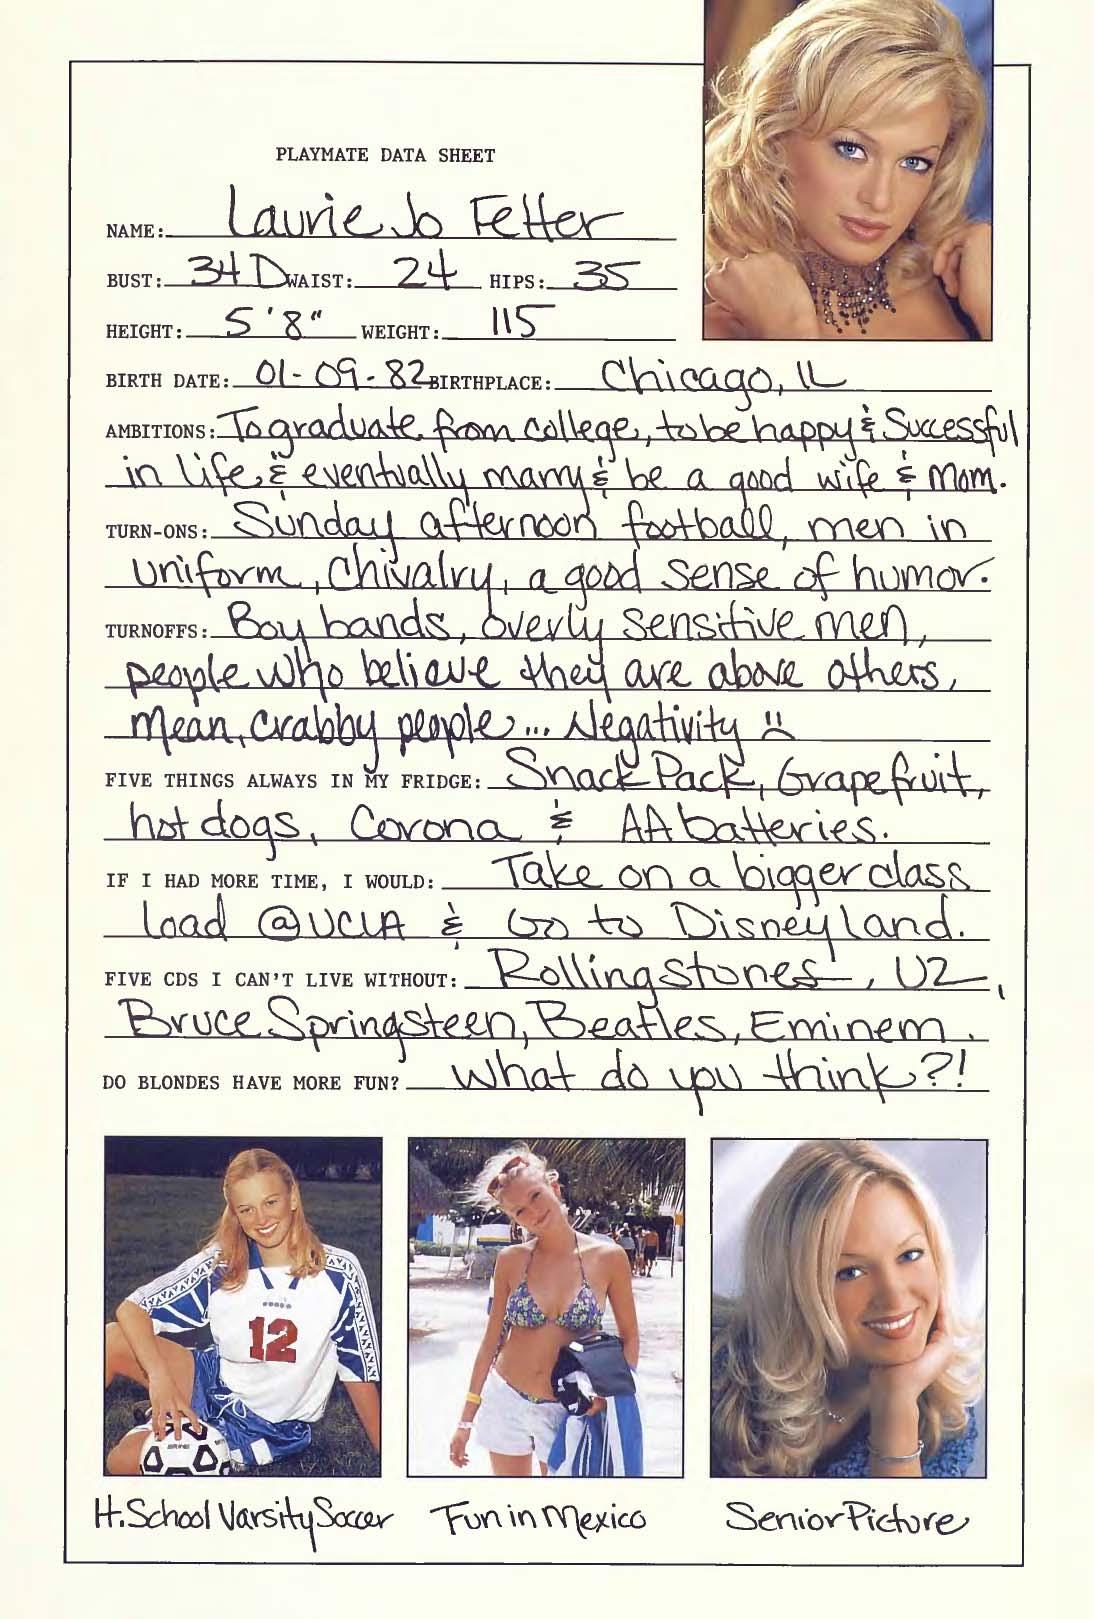 PLAYMATE DATA SHEET
NAME: Laurie Jo Fetter
BUST: 34D WAIST: 24 HIPS: 35
HEIGHT: 5'8" WEIGHT: 115
BIRTH DATE: 01-09-82 BIRTHPLACE: Chicago, IL
AMBITIONS: To graduate from college, to be happy & Successful
in life, & eventually marry & be a good wife & Mom.
TURN-ONS: Sunday afternoon football, men in
uniform, Chivalry, a good sense of humor.
TURNOFFS: Boy bands, overly sensitive men,
people who believe they are above others,
Mean, crabby people... Negativity
FIVE THINGS ALWAYS IN MY FRIDGE: Snack Pack, Grapefruit,
hot dogs, Corona & AA batteries.
IF I HAD MORE TIME, I WOULD: Take on a bigger class
load @ UCLA & Go to Disneyland.
FIVE CDS I CAN'T LIVE WITHOUT: Rolling Stones, U2,
Bruce Springsteen, Beatles, Eminem.
DO BLONDES HAVE MORE FUN? What do you think?!
12
H. School Varsity Soccer Fun in Mexico Senior Picture